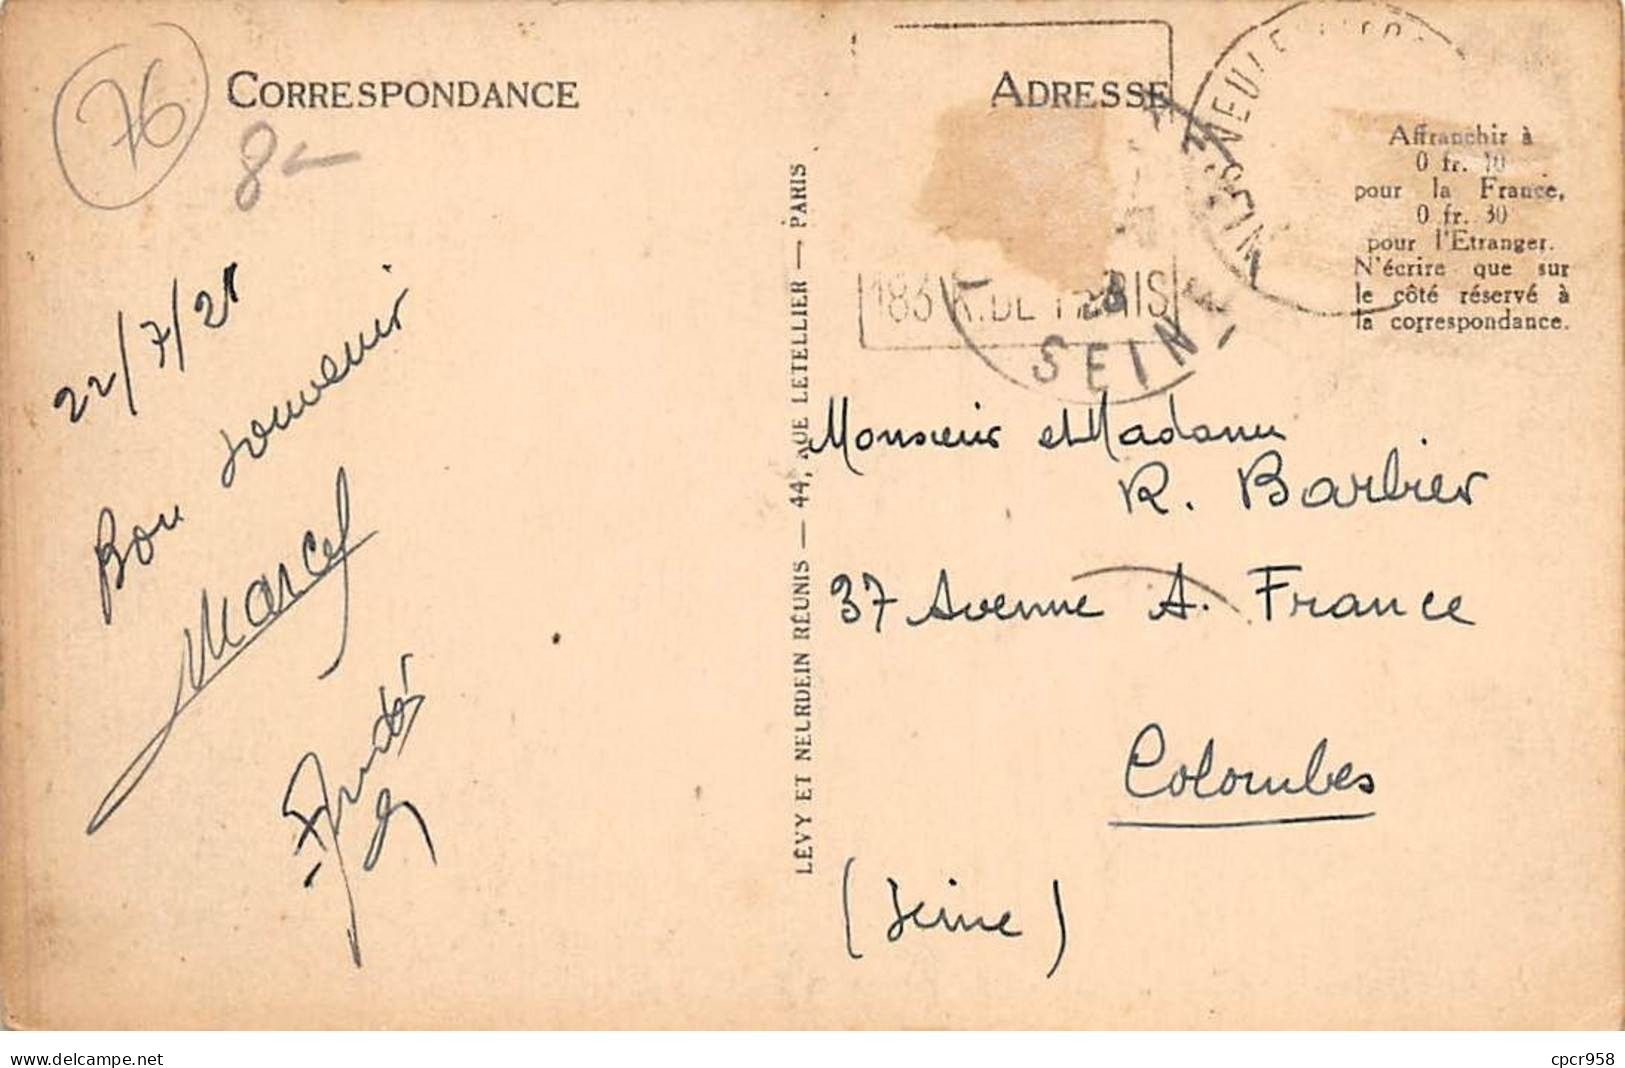 76
CORRESPONDANCE
8
22/7/28
Bon souvenir
Marcel
LÉVY ET NEURDEIN RÉUNIS — 44, RUE LETELLIER — PARIS
ADRESSE
183 K. DE PARIS
28
SEINE
Affranchir à
0 fr. 10
pour la France,
0 fr. 30
pour l'Etranger.
N'écrire que sur
le côté réservé à
la correspondance.
Monsieur et Madame
R. Barbier
37 Avenue A. France
Colombes
(Seine)
www.delcampe.net
cpcr958